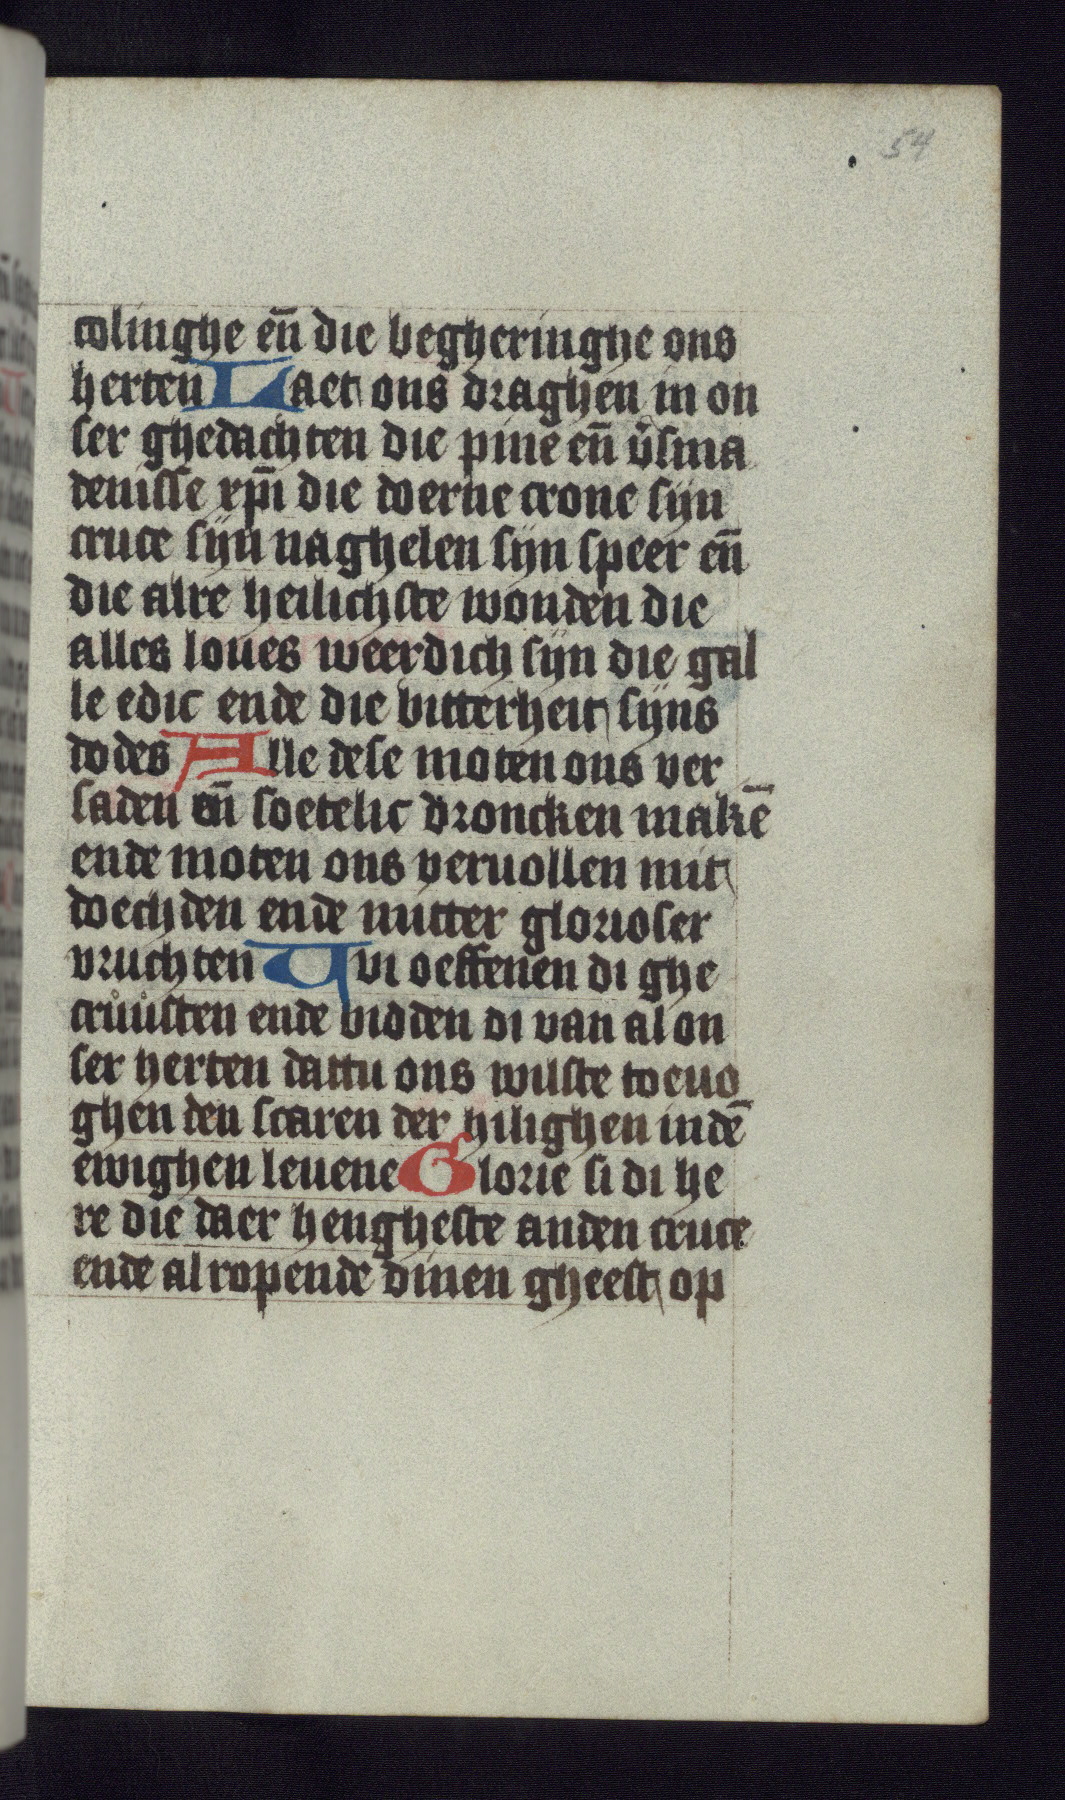 54
colinghe en̄ die begheringhe ons
herten Laet ons draghen in on
ser ghedachten die pine en̄ v̓sma
denisse xp̄i die doerne crone sijn
cruce sijn naghelen sijn speer en̄
die alre heilichste wonden die
alles loues weerdich sijn die gal
le edic ende die bitterheit sijns
dodes Alle dese moten ons ver
saden en̄ soetelic droncken makē
ende moten ons veruollen mit
doechden ende mitter glorioser
vruchten Wi oeffenen di ghe
cruusten ende bidden di van al on
ser herten dattu ons wilste toeuo
ghen den scaren der hilighen in dē
ewighen leuene Glorie si di he
re die daer hengheste anden cruce
ende al ropende dinen gheest op